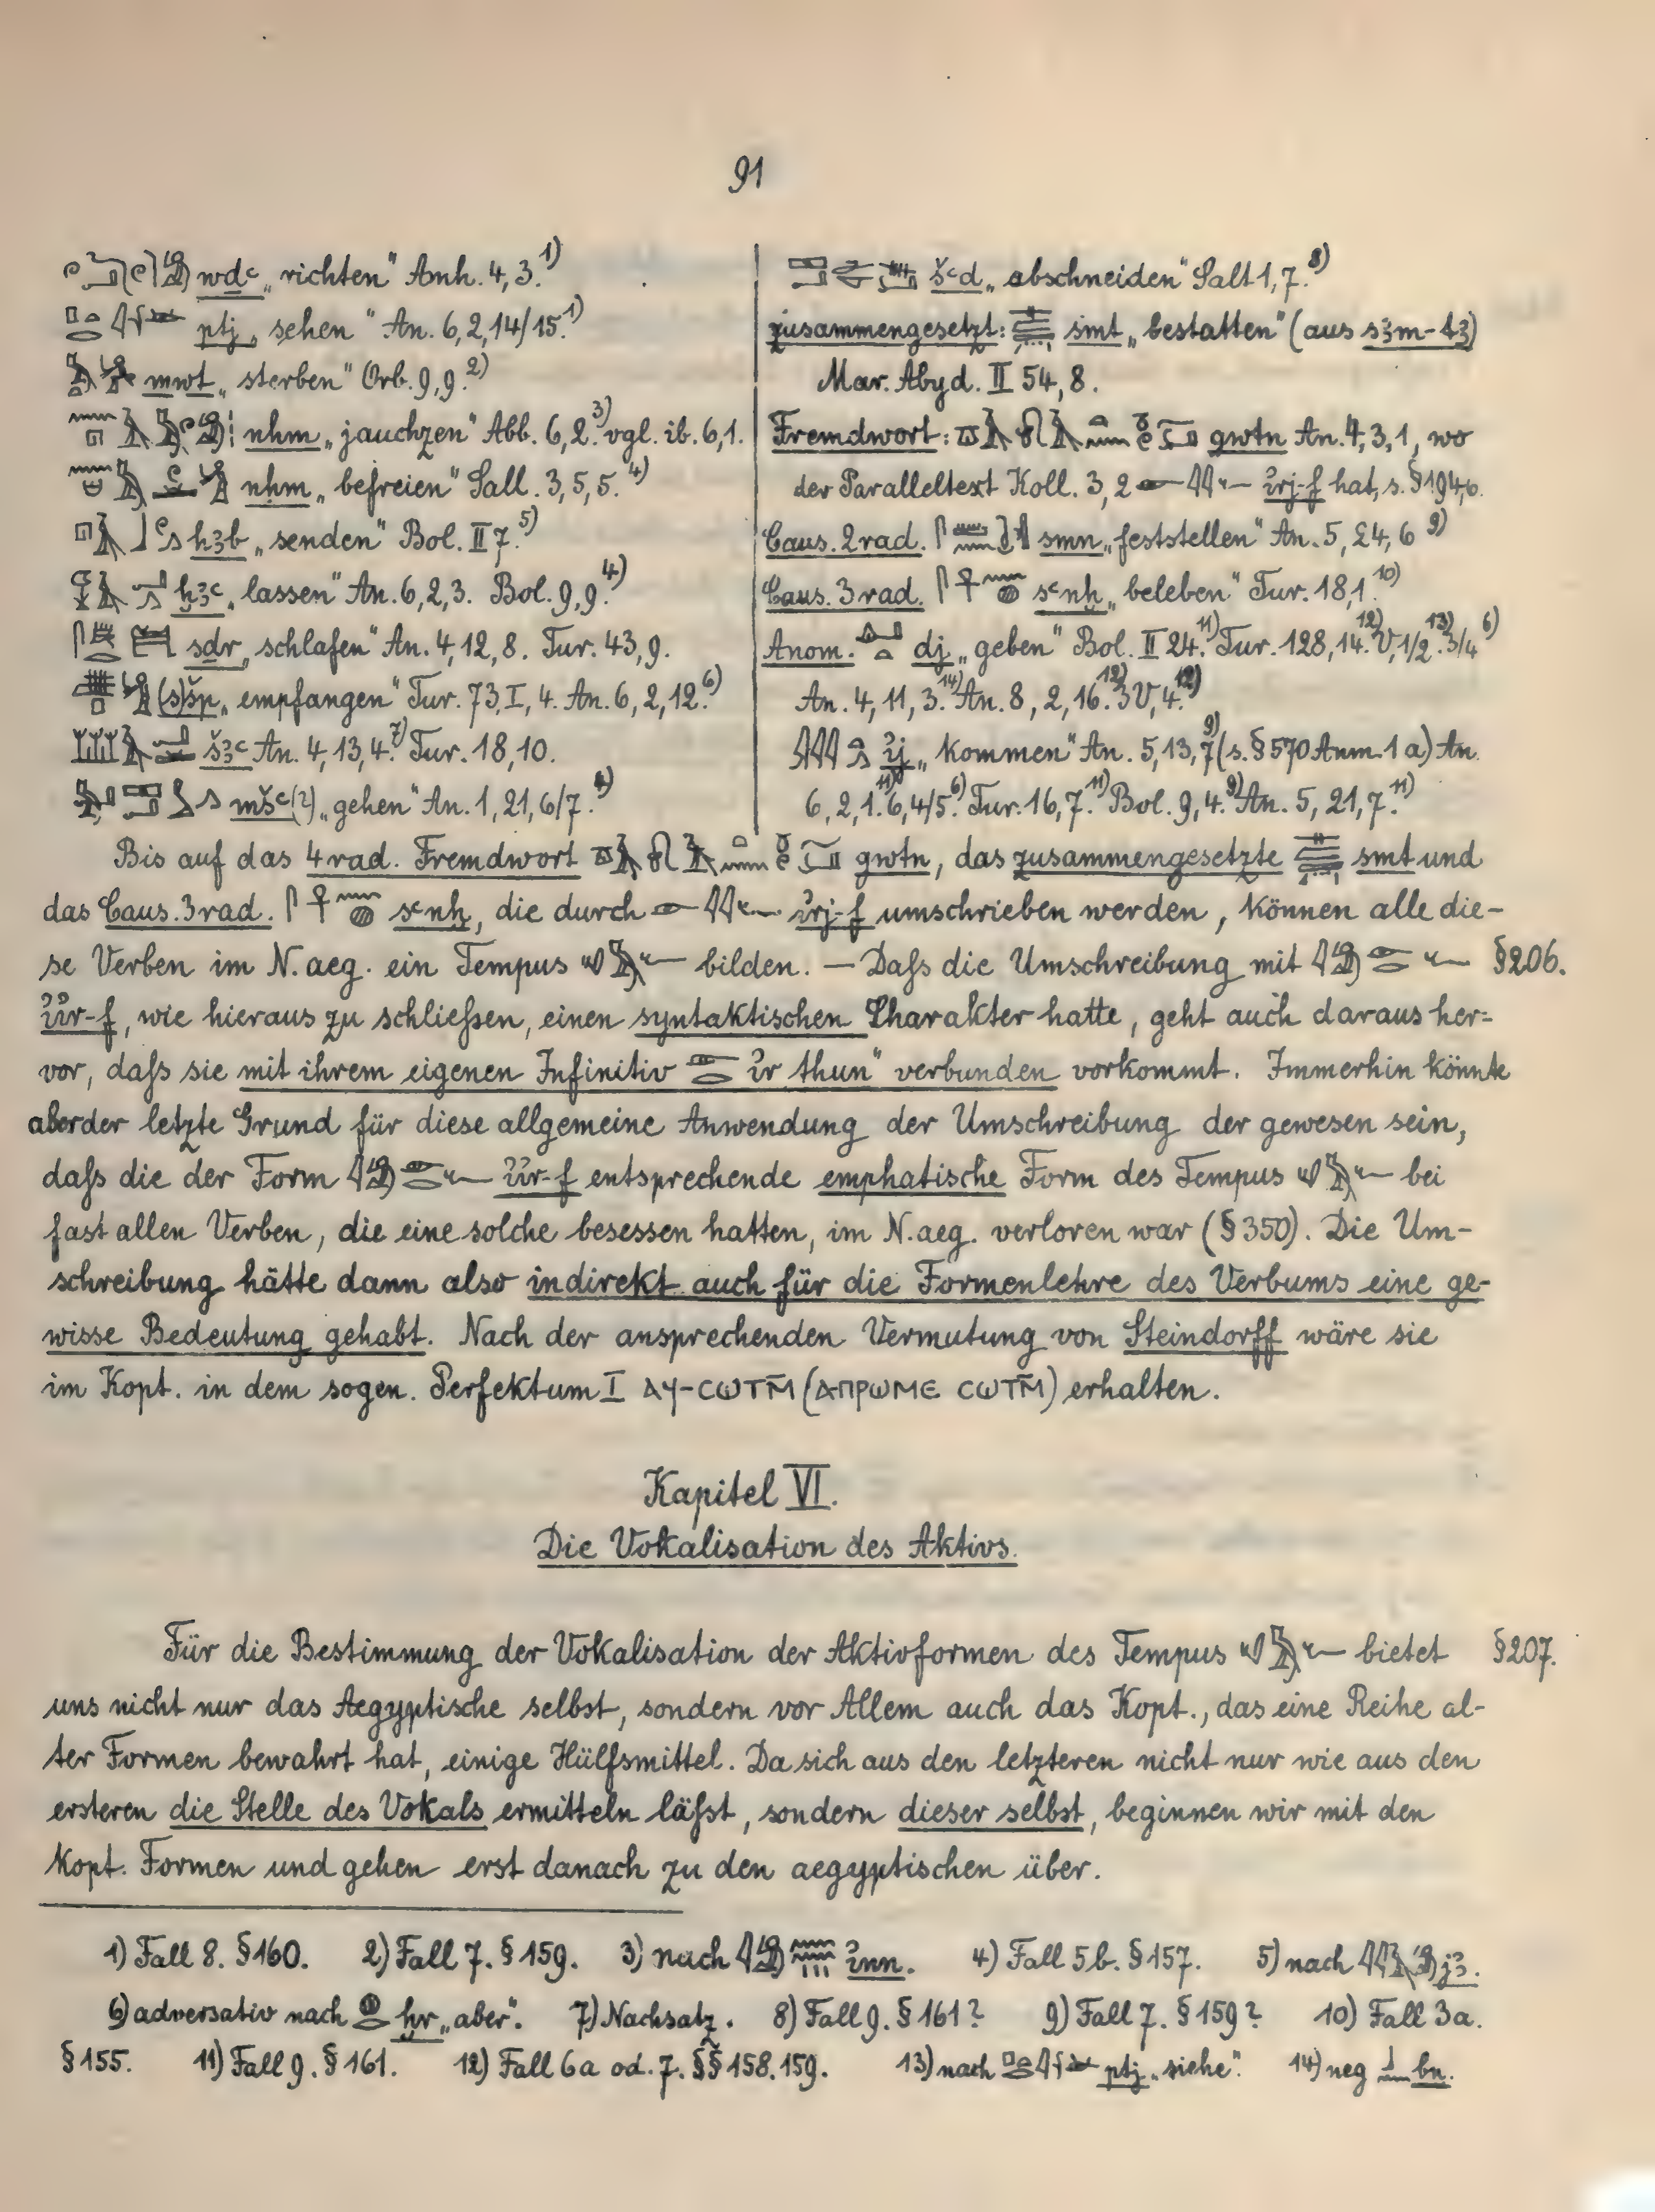 91
wdꜥ „richten“ Amh. 4,3.1)
ptj „sehen“ An. 6,2,14/15.1)
mwt „sterben“ Orb. 9,9.2)
nhm „jauchzen“ Abb. 6,2.3) vgl. ib. 6,1.
nḥm „befreien“ Sall. 3,5,5.4)
hꜣb „senden“ Bol. II 7.5)
ḫꜣꜥ „lassen“ An. 6,2,3. Bol. 9,9.4)
sdr „schlafen“ An. 4,12,8. Tur. 43,9.
(s)šp „empfangen“ Tur. 73,I,4. An. 6,2,12.6)
šꜣꜥ An. 4,13,4.7) Tur. 18,10.
mšꜥ(?) „gehen“ An. 1,21,6/7.
šꜥd „abschneiden“ Salt 1,7.8)
zusammengesetzt: smt „bestatten“ (aus sꜣm-tꜣ)
Mar. Abyd. II 54,8.
Fremdwort: gwtn An. 4,3,1, wo
der Paralleltext Koll. 3,2 ı͗rj-f hat, s. § 194,6.
Caus. 2rad. smn „feststellen“ An. 5,24,6 9)
Caus. 3rad. sꜥnḫ „beleben“ Tur. 18,1.10)
Anom. dj „geben“ Bol. II 24.11) Tur. 128,14.12) V,1/2.13) 3/4 6)
An. 4,11,3.14) An. 8,2,16.12) 3 V,4.12)
ı͗j „kommen“ An. 5,13,7 9) (s. § 570 Anm. 1 a) An.
6,2,1.11) 6,4/5.6) Tur. 16,7.11) Bol. 9,4.9) An. 5,21,7.11)
Bis auf das 4 rad. Fremdwort gwtn, das zusammengesetzte smt und
das Caus. 3rad. sꜥnḫ, die durch ı͗rj-f umschrieben werden, können alle die-
se Verben im N.aeg. ein Tempus bilden. — Daſs die Umschreibung mit § 206.
ı͗ı͗r-f, wie hieraus zu schlieſsen, einen syntaktischen Charakter hatte, geht auch daraus her=
vor, daſs sie mit ihrem eigenen Infinitiv ı͗r thun“ verbunden vorkommt. Immerhin könnte
aber der letzte Grund für diese allgemeine Anwendung der Umschreibung der gewesen sein,
daſs die der Form ı͗ı͗r-f entsprechende emphatische Form des Tempus bei
fast allen Verben, die eine solche besessen hatten, im N.aeg. verloren war (§ 350). Die Um-
schreibung hätte dann also indirekt auch für die Formenlehre des Verbums eine ge-
wisse Bedeutung gehabt. Nach der ansprechenden Vermutung von Steindorff wäre sie
im Kopt. in dem sogen. Perfektum I ⲁϥ-ⲥⲱⲧⲙ̄ (ⲁⲡⲣⲱⲙⲉ ⲥⲱⲧⲙ̄) erhalten.
Kapitel VI.
Die Vokalisation des Aktivs.
Für die Bestimmung der Vokalisation der Aktivformen des Tempus bietet § 207.
uns nicht nur das Aegyptische selbst, sondern vor Allem auch das Kopt., das eine Reihe al-
ter Formen bewahrt hat, einige Hülfsmittel. Da sich aus den letzteren nicht nur wie aus den
ersteren die Stelle des Vokals ermitteln läſst, sondern dieser selbst, beginnen wir mit den
kopt. Formen und gehen erst danach zu den aegyptischen über.
1) Fall 8. § 160. 2) Fall 7. § 159. 3) nach ı͗nn. 4) Fall 5b. § 157. 5) nach jꜣ.
6) adversativ nach ḫr „aber“. 7) Nachsatz. 8) Fall 9. § 161? 9) Fall 7. § 159? 10) Fall 3a.
§ 155. 11) Fall 9. § 161. 12) Fall 6a od. 7. §§ 158.159. 13) nach ptj „siehe“. 14) neg bn.